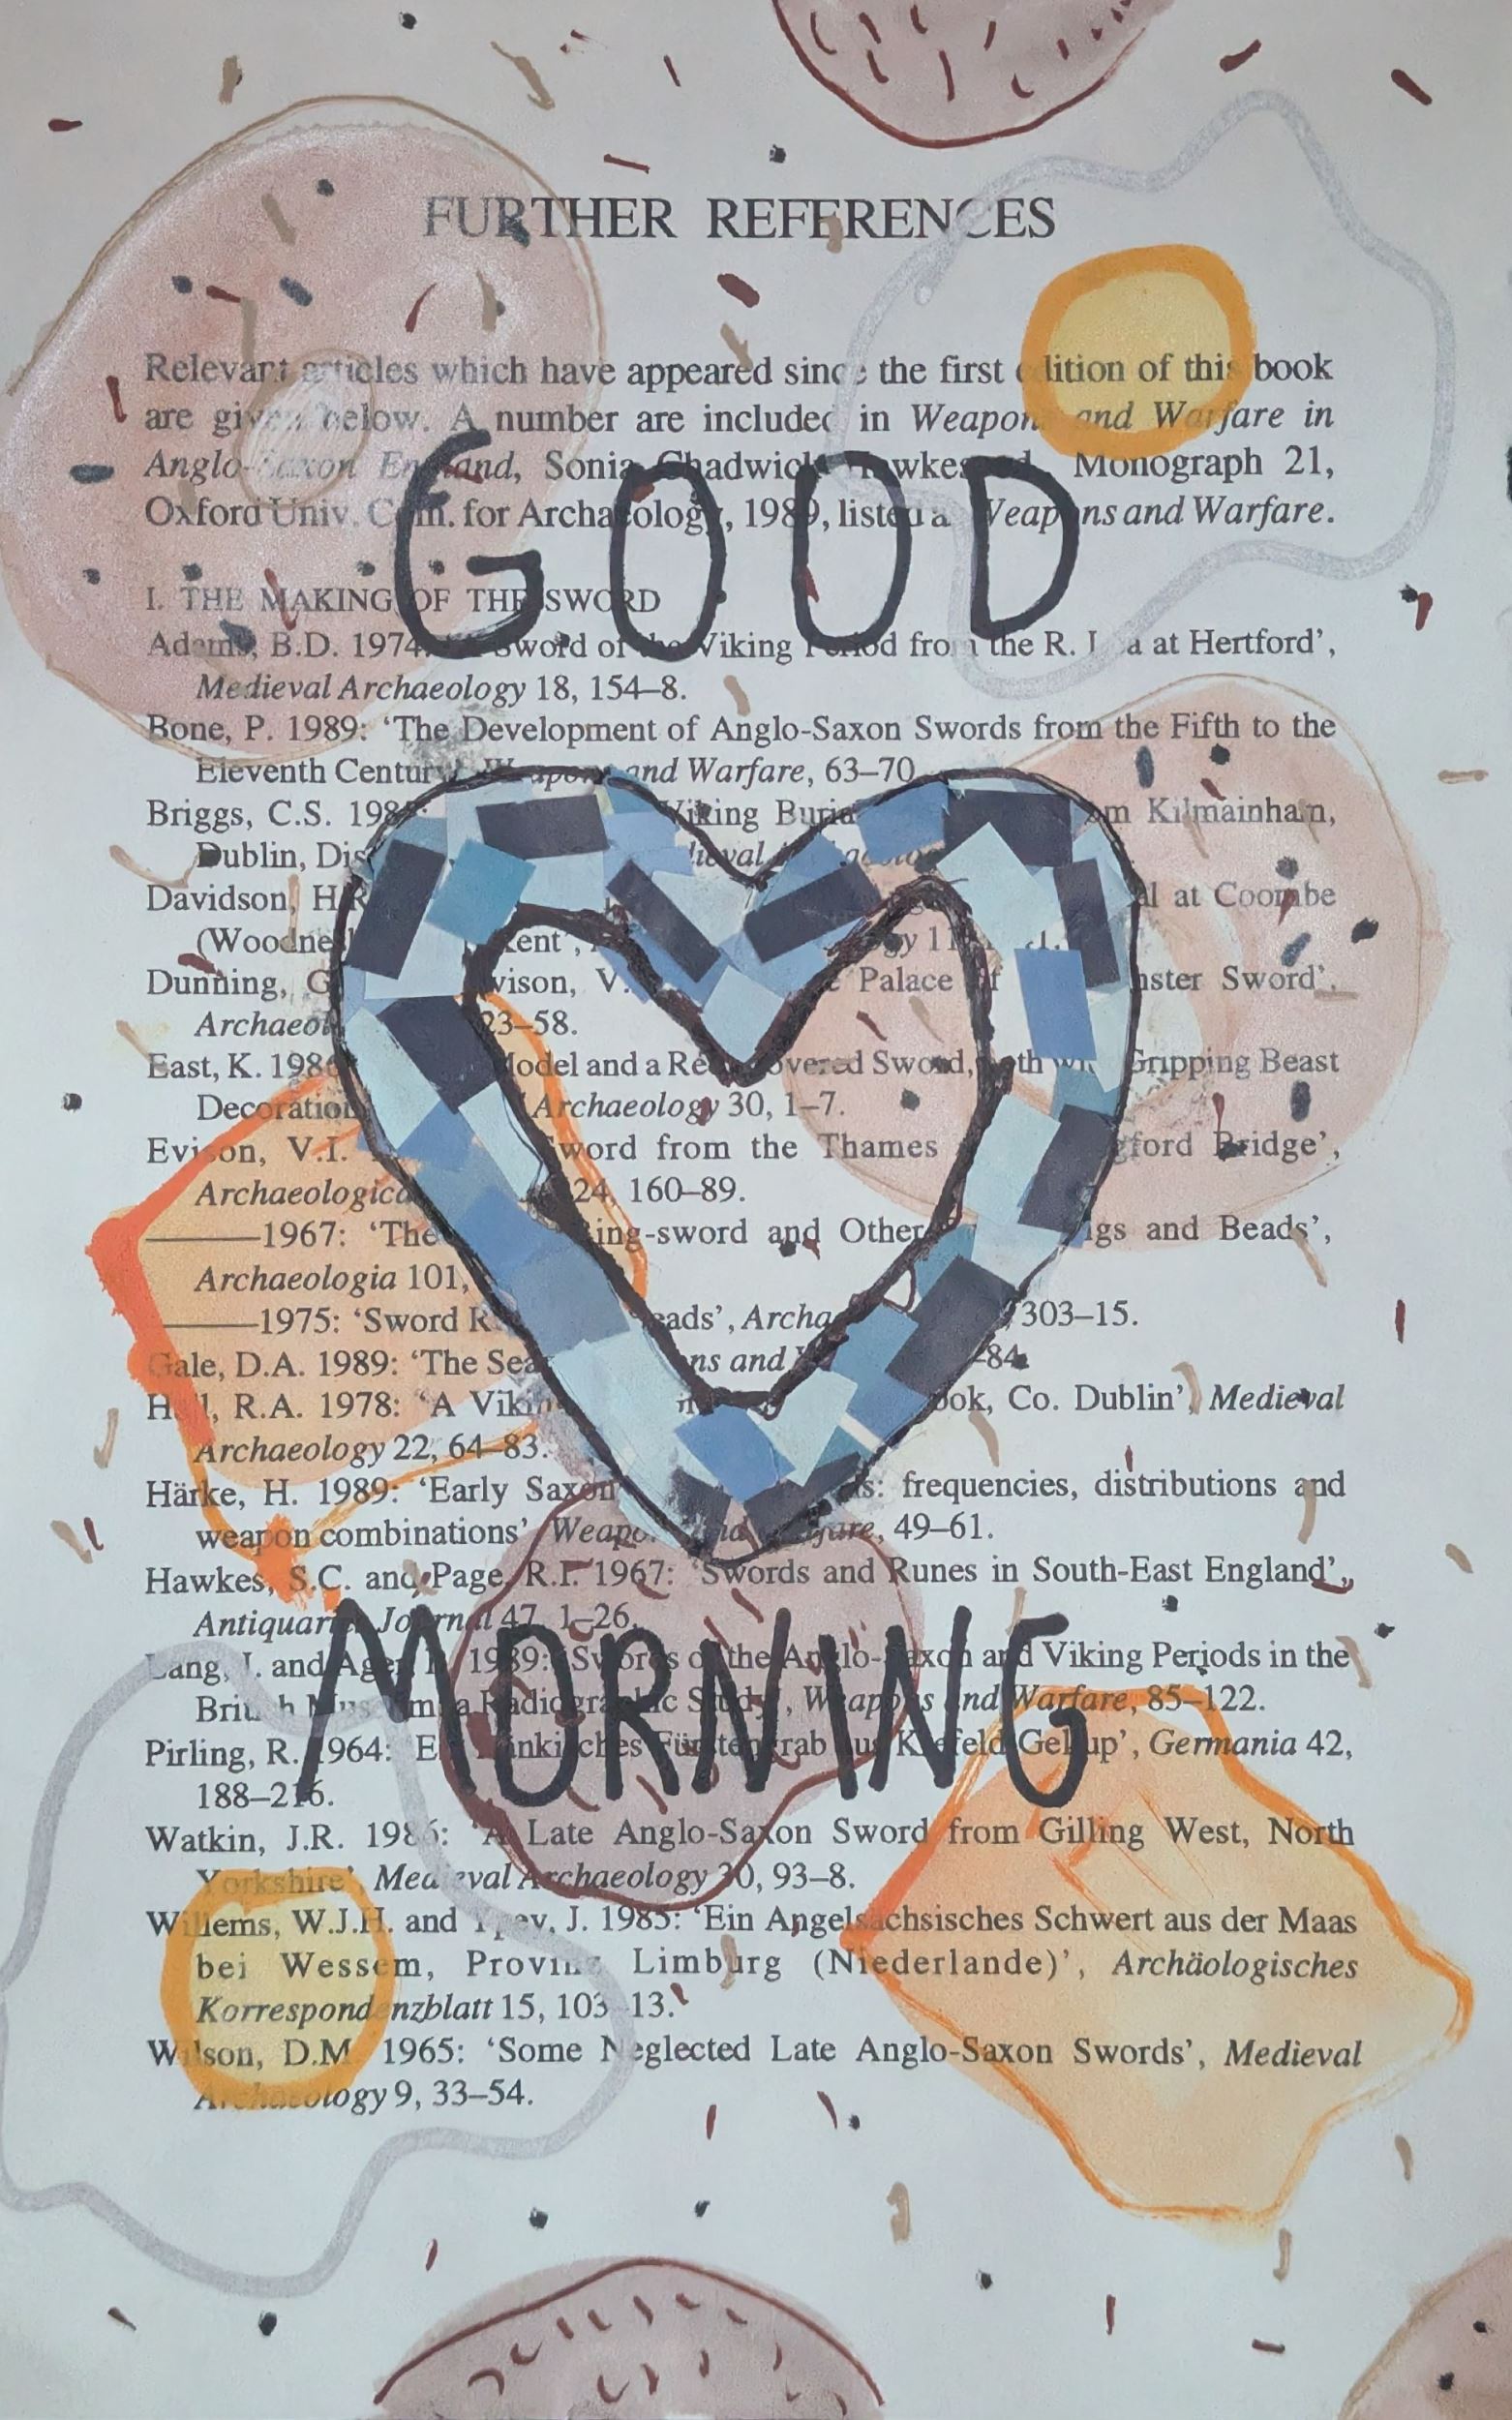 FURTHER REFERENCES
Relevant articles which have appeared since the first edition of this book
are given below. A number are included in Weapons and Warfare in
Anglo-Saxon England, Sonia Chadwick Hawkes Monograph 21,
Oxford Univ. Com. for Archaeology, 1989, listed as Weapons and Warfare.
GOOD
I. THE MAKING OF THE SWORD
Adams, B.D. 1974: Sword of the Viking Period from the R. Lea at Hertford',
Medieval Archaeology 18, 154–8.
Bone, P. 1989: 'The Development of Anglo-Saxon Swords from the Fifth to the
Eleventh Century', Weapons and Warfare, 63–70
Briggs, C.S. 198 Viking Buria m Kilmainham,
Dublin, Dis dieval
Davidson, H.R. al at Coombe
(Woodne Kent',
Dunning, G vison, V. Palace of nster Sword',
Archaeol 23–58.
East, K. 1986 Model and a Rediscovered Sword, both with Gripping Beast
Decoration Archaeology 30, 1–7.
Evison, V.I. Sword from the Thames gford Bridge',
Archaeologica 124, 160–89.
——1967: 'The Ring-sword and Other gs and Beads',
Archaeologia 101,
——1975: 'Sword R eads', Archa 303–15.
Gale, D.A. 1989: 'The Sea ns and 84.
Hall, R.A. 1978: 'A Viking ook, Co. Dublin', Medieval
Archaeology 22, 64–83.
Härke, H. 1989: 'Early Saxon s: frequencies, distributions and
weapon combinations', Weapons and Warfare, 49–61.
Hawkes, S.C. and Page, R.I. 1967: 'Swords and Runes in South-East England',
Antiquaries Journal 47, 1–26.
MORNING
Lang, J. and Ager, B. 1989: 'Swords of the Anglo-Saxon and Viking Periods in the
British Museum: a Radiographic Study', Weapons and Warfare, 85–122.
Pirling, R. 1964: 'Ein fränkisches Fürstengrab aus Krefeld-Gellup', Germania 42,
188–216.
Watkin, J.R. 1986: 'A Late Anglo-Saxon Sword from Gilling West, North
Yorkshire', Medieval Archaeology 30, 93–8.
Willems, W.J.H. and Ypey, J. 1985: 'Ein Angelsachsisches Schwert aus der Maas
bei Wessem, Provinz Limburg (Niederlande)', Archäologisches
Korrespondenzblatt 15, 103–13.
Wilson, D.M. 1965: 'Some Neglected Late Anglo-Saxon Swords', Medieval
Archaeology 9, 33–54.